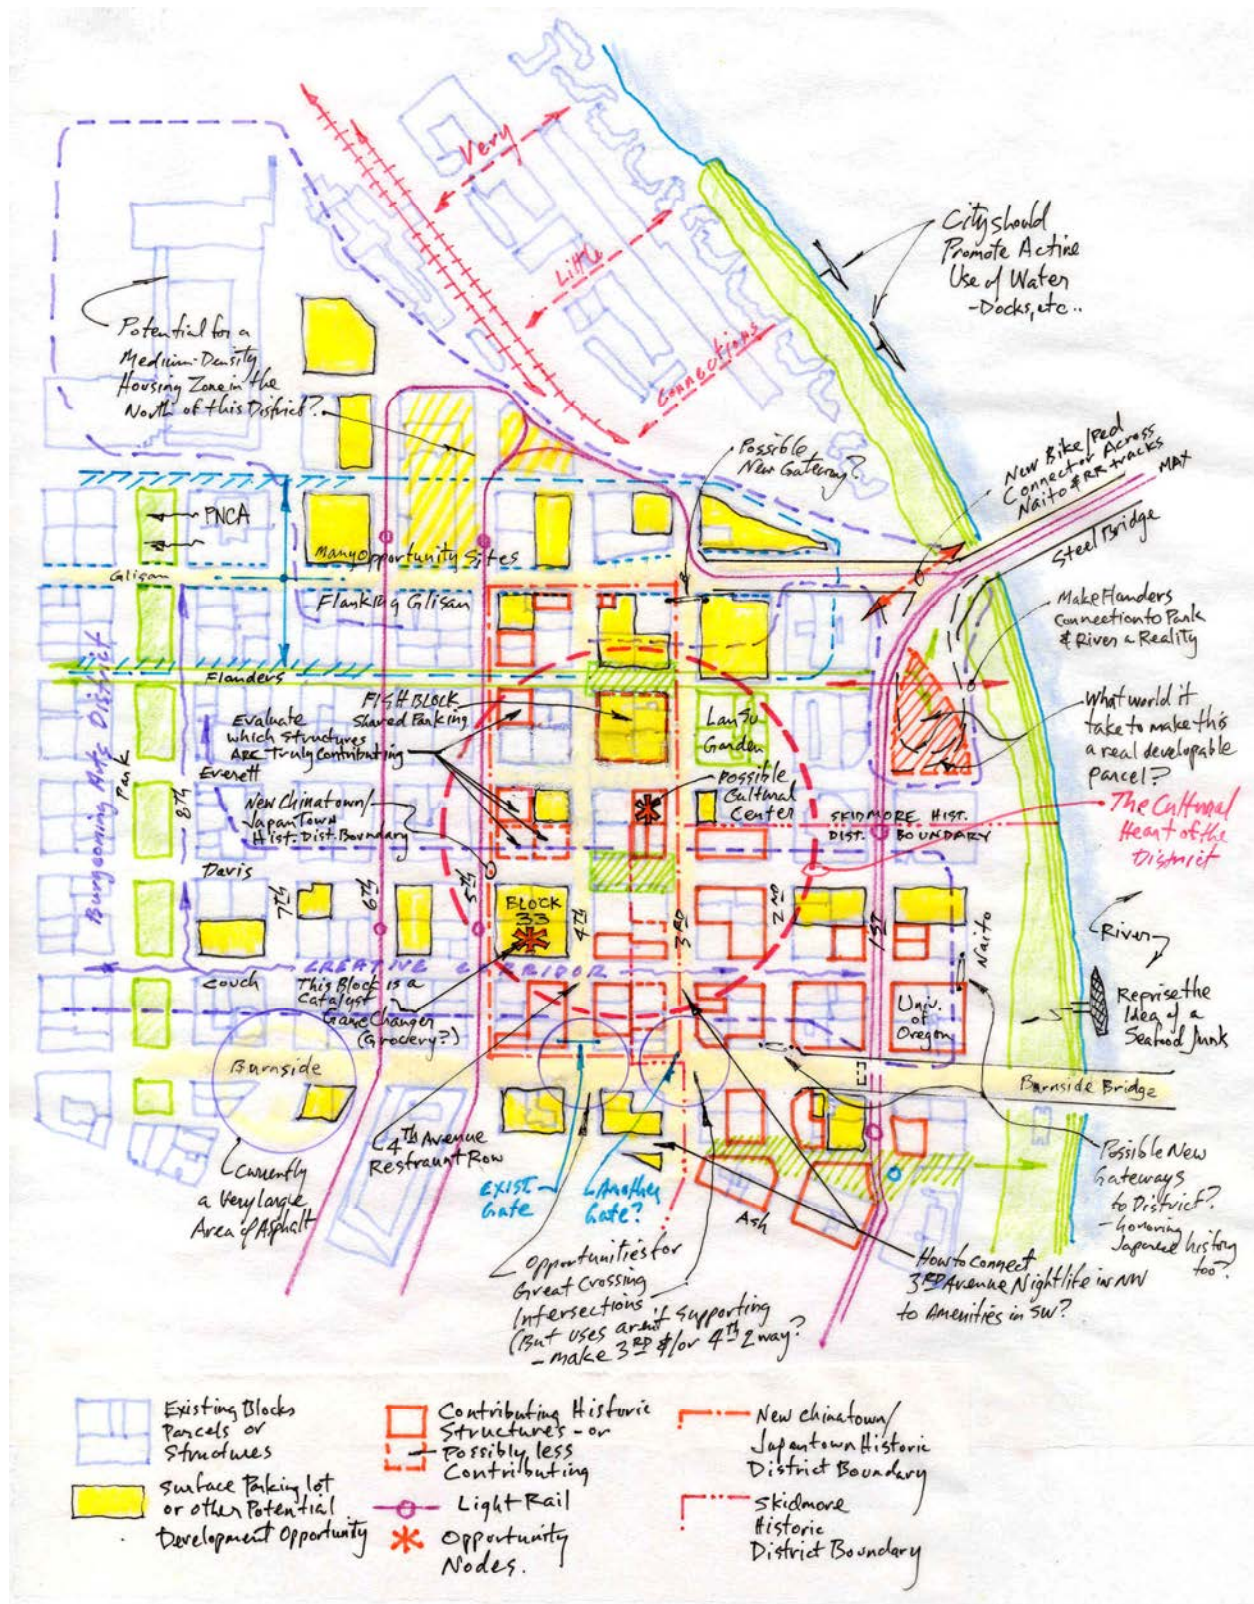 Very
Little
Connections
City should
Promote Active
Use of Water
-Docks, etc..
Potential for a
Medium-Density
Housing Zone in the
North of this District?
Possible
New Gateway?
New Bike/Ped
Connector Across
Naito & RR tracks
MAX
Steel Bridge
PNCA
Many Opportunity Sites
Glisan
Flanking Glisan
Make Flanders
Connection to Park
& River a Reality
Flanders
Burgeoning Arts District
Park
8th
FISH BLOCK
Shared Parking
Evaluate
which Structures
ARE Truly Contributing
Everett
Lan Su
Garden
What world it
take to make this
a real developable
parcel?
Possible
Cultural
Center
New Chinatown/
JapanTown
Hist. Dist. Boundary
SKIDMORE HIST.
DIST. BOUNDARY
The Cultural
Heart of the
District
Davis
7th
6th
5th
BLOCK
33
4th
3RD
2ND
1ST
Naito
River
CREATIVE CORRIDOR
Couch
This Block is a
Catalyst
Game Changer
(Grocery?)
Univ.
of
Oregon
Reprise the
Idea of a
Seafood Junk
Burnside
Burnside Bridge
4th Avenue
Restraunt Row
Currently
a Very Large
Area of Asphalt
EXIST
Gate
Another
Gate?
Ash
Possible New
Gateways
to District?
- honoring
Japanese history
too?
Opportunities for
Great Crossing
Intersections
(But uses aren't supporting
- make 3RD &/or 4th 2 way?
How to connect
3RD Avenue Nightlife in NW
to Amenities in SW?
Existing Blocks
Parcels or
Structures
Surface Parking lot
or other Potential
Development Opportunity
Contributing Historic
Structures - or
Possibly less
Contributing
Light Rail
Opportunity
Nodes.
New Chinatown/
Japantown Historic
District Boundary
Skidmore
Historic
District Boundary